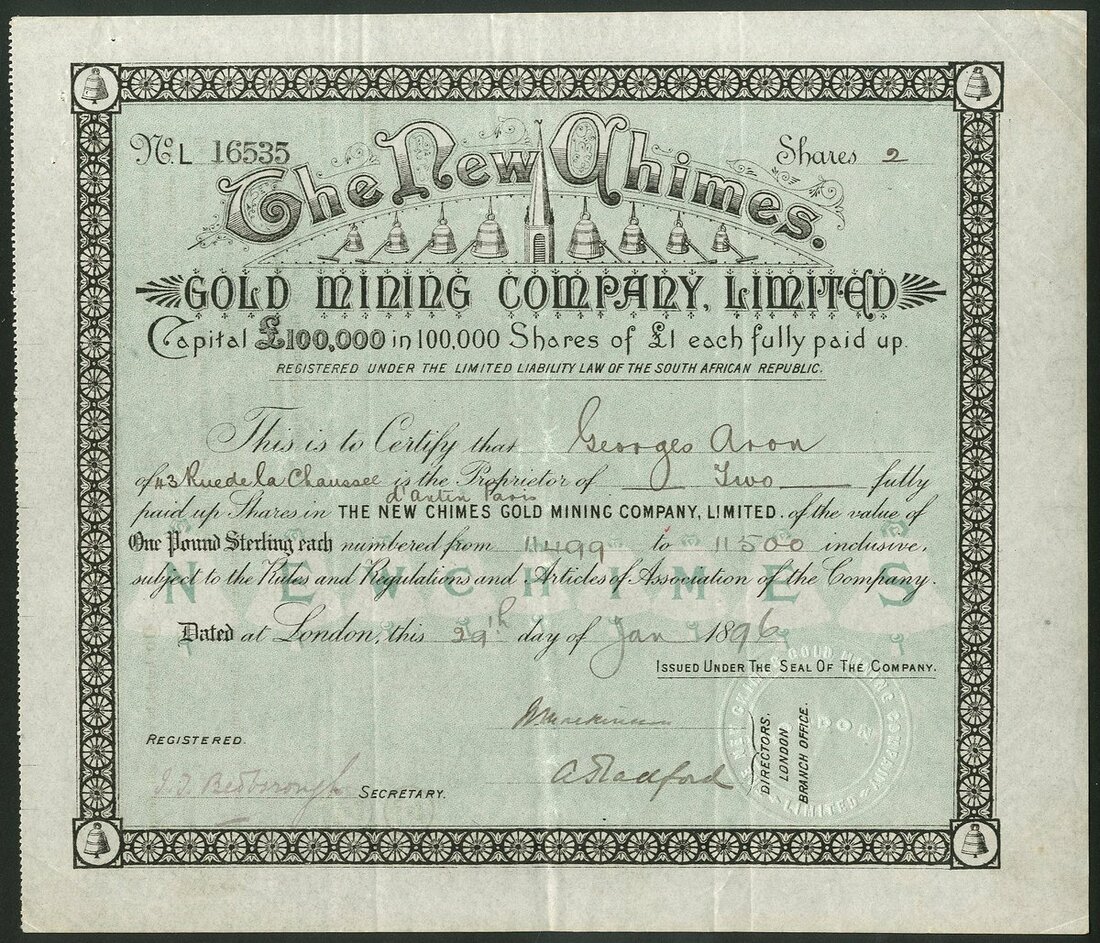 No. L 16535
Shares 2
The New Chimes.
GOLD MINING COMPANY, LIMITED
Capital £100,000 in 100,000 Shares of £1 each fully paid up.
REGISTERED UNDER THE LIMITED LIABILITY LAW OF THE SOUTH AFRICAN REPUBLIC.
This is to Certify that Georges Aron
of 43 Rue de la Chaussee is the Proprietor of Two fully
d'antin Paris
paid up Shares in THE NEW CHIMES GOLD MINING COMPANY, LIMITED. of the value of
One Pound Sterling each numbered from 11499 to 11500 inclusive,
subject to the Rules and Regulations and Articles of Association of the Company.
NEW CHIMES
Dated at London, this 29th day of Jan 1896
ISSUED UNDER THE SEAL OF THE COMPANY.
NEW CHIMES GOLD MINING COMPANY LIMITED
LONDON
A Radford
DIRECTORS.
LONDON
BRANCH OFFICE.
REGISTERED.
J. J. Bedborough SECRETARY.